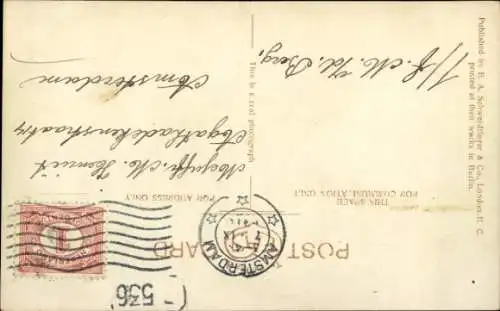 POST CARD
THIS SPACE
FOR COMMUNICATION ONLY
FOR ADDRESS ONLY
This is a real photograph
Published by E. A. Schwerdtfeger & Co., London E. C.
printed at their works in Berlin.
Mejuffr. M.
Agathadekenstraat
Amsterdam
v/d Berg,
AMSTERDAM
1
536